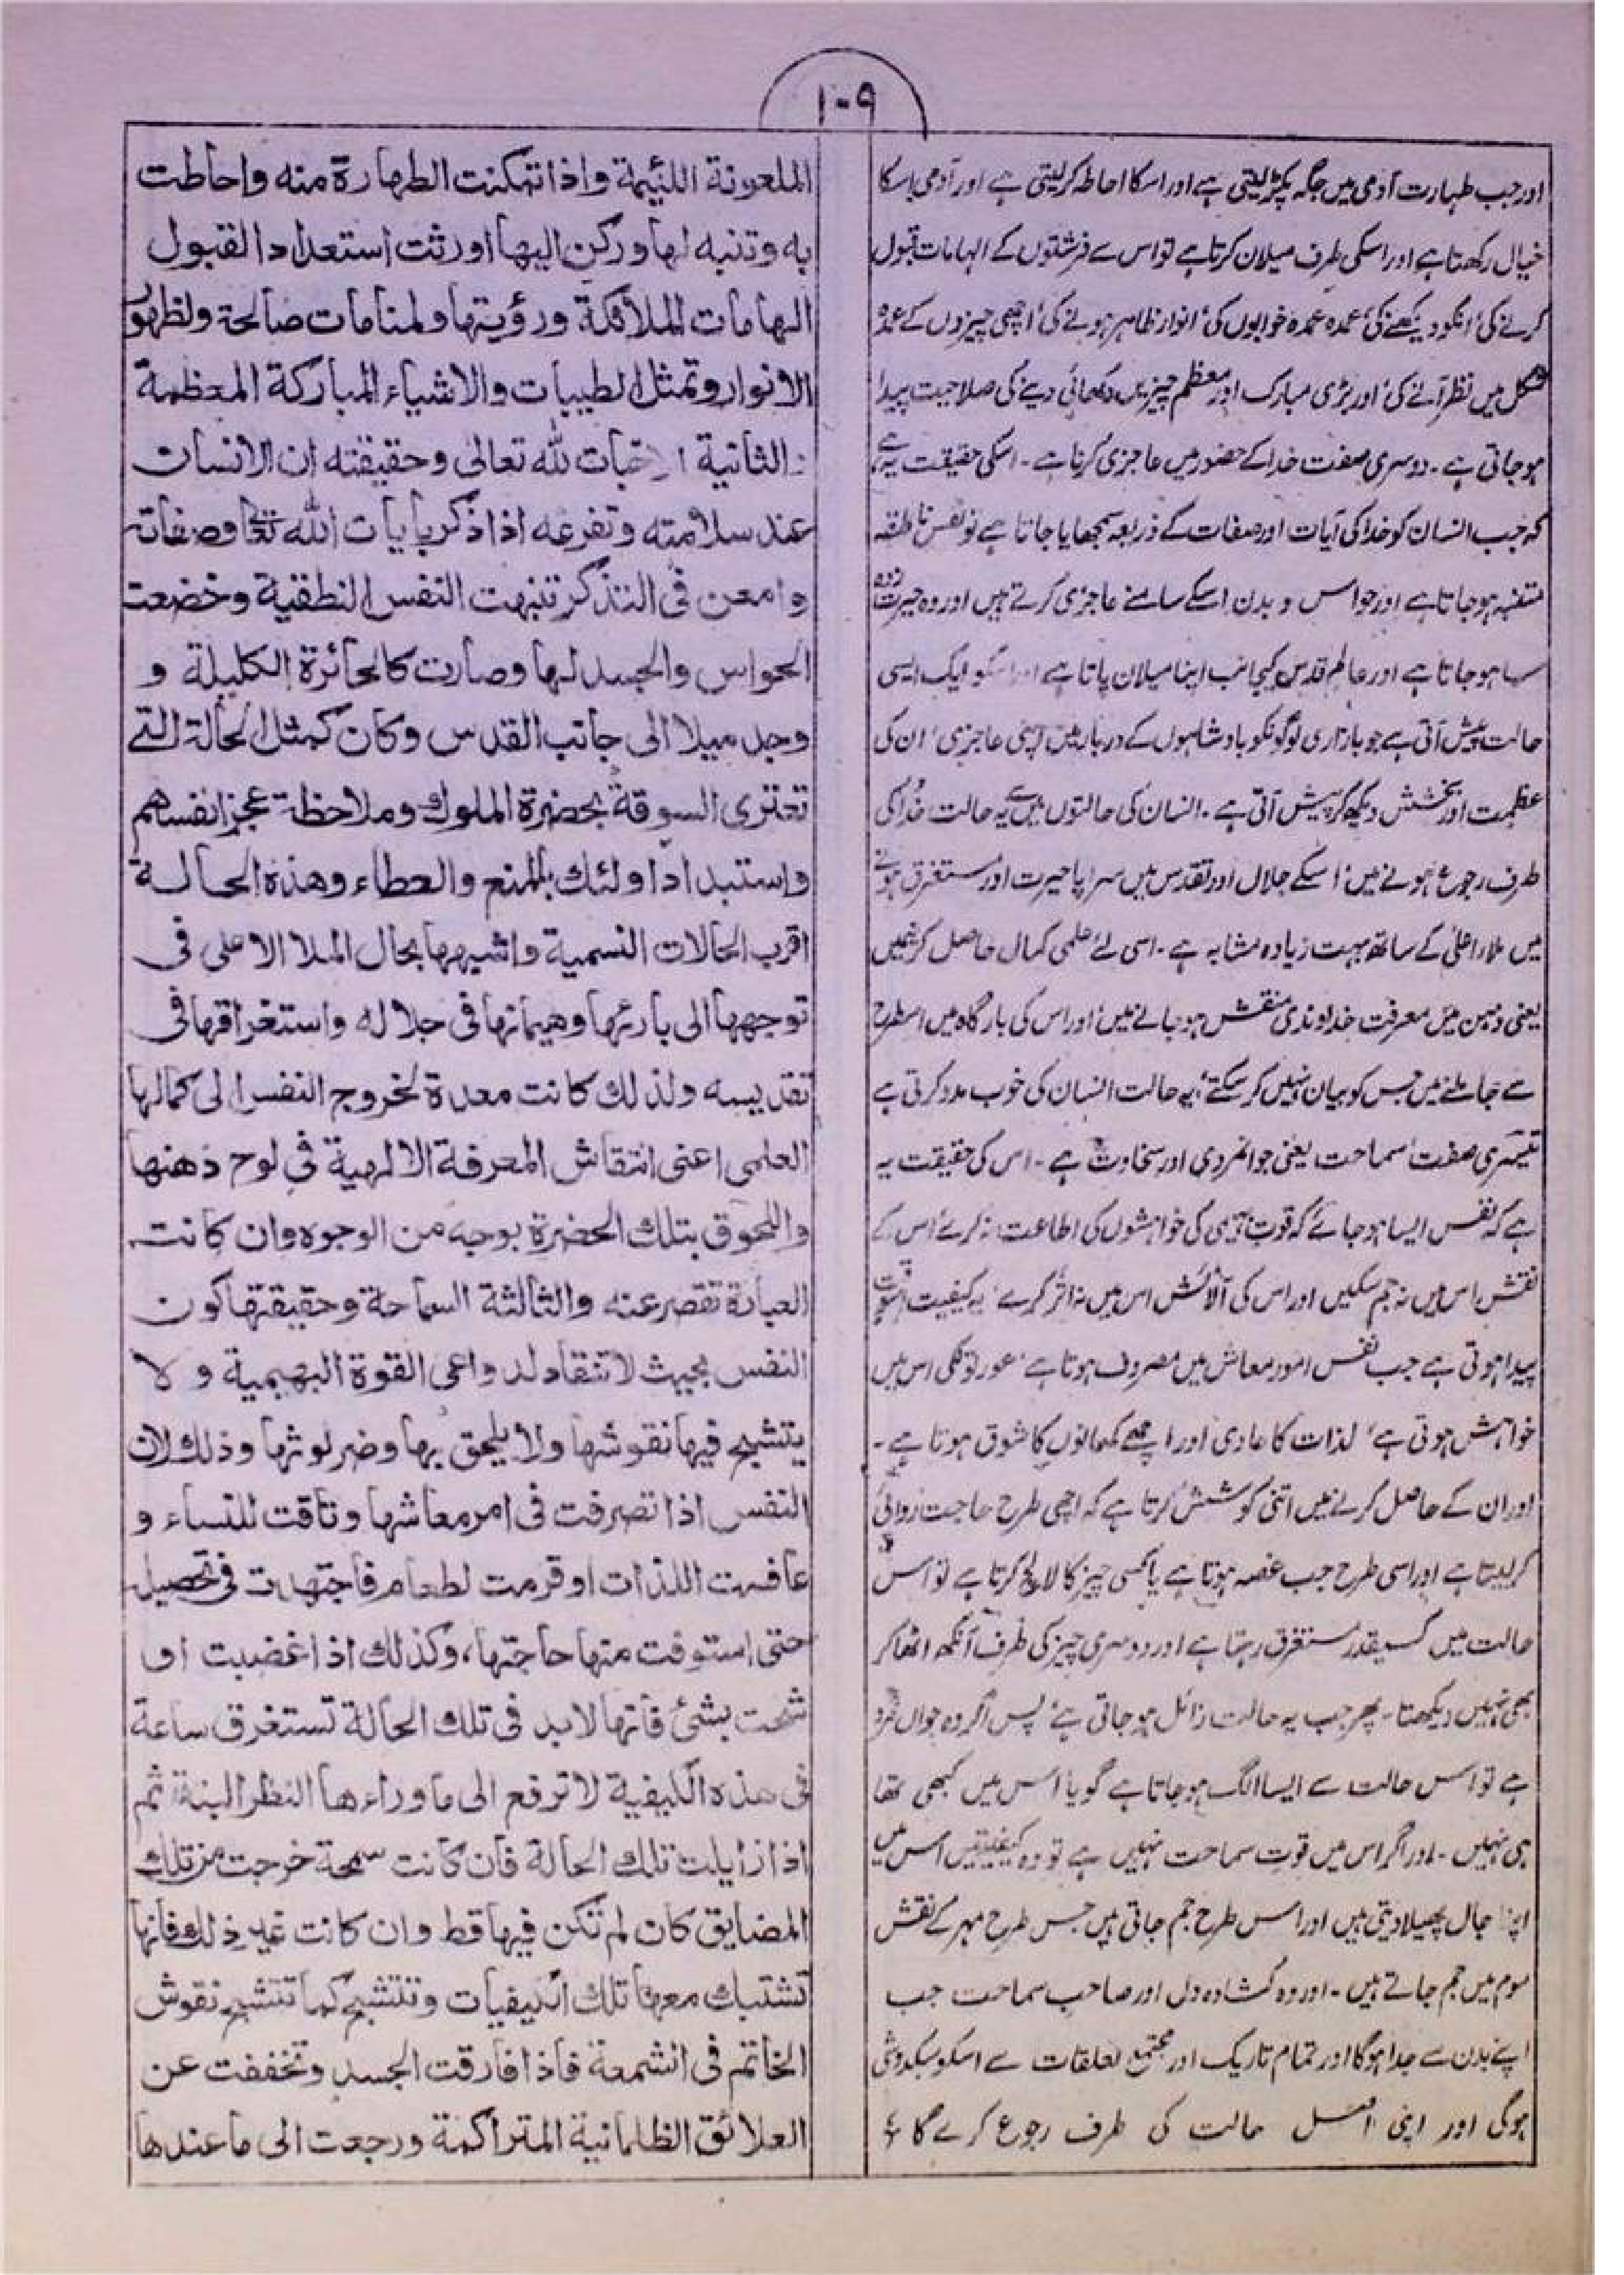 ۱۰۹
اور جب طہارت آدمی میں جگہ پکڑ لیتی ہے اور اسکا احاطہ کر لیتی ہے اور آدمی اسکا
خیال رکھتا ہے اور اسکی طرف میلان کرتا ہے تو اس سے فرشتوں کے الہامات قبول
کرنے کی، انکو دیکھنے کی، عمدہ عمدہ خوابوں کی، انوار ظاہر ہونے کی، اچھی چیزوں کے عمدہ
شکل میں نظر آنے کی، اور بڑی مبارک اور معظم چیزیں دکھائی دینے کی صلاحیت پیدا
ہو جاتی ہے۔ دوسری صفت خدا کے حضور میں عاجزی کرنا ہے۔ اسکی حقیقت یہ ہے
کہ جب انسان کو خدا کی آیات اور صفات کے ذریعہ سمجھایا جاتا ہے تو نفس ناطقہ
متنبہ ہو جاتا ہے اور حواس و بدن اسکے سامنے عاجزی کرتے ہیں اور وہ حیرت زدہ
سا ہو جاتا ہے اور عالم قدس کیجانب اپنا میلان پاتا ہے اور اسکو ایک ایسی
حالت پیش آتی ہے جو بازاری لوگونکو بادشاہوں کے دربار میں اپنی عاجزی، ان کی
عظمت اور بخشش دیکھ کر پیش آتی ہے۔ انسان کی حالتوں میں سے یہ حالت خدا کی
طرف رجوع ہونے میں، اسکے جلال اور تقدس میں سراپا حیرت اور مستغرق ہونے
میں ملاء اعلیٰ کے ساتھ بہت زیادہ مشابہ ہے۔ اسی لئے علمی کمال حاصل کرنیمیں
یعنی ذہن میں معرفت خداوندی منقش ہو جانے میں، اور اس کی بارگاہ میں اسطرح
سے جا ملنے میں جس کو بیان نہیں کر سکتے، یہ حالت انسان کی خوب مدد کرتی ہے
تیسری صفت سماحت یعنی جوانمردی اور سخاوت ہے۔ اس کی حقیقت یہ
ہے کہ نفس ایسا ہو جائے کہ قوت بہیمی کی خواہشوں کی اطاعت نہ کرے، اس کے
نقش اس میں نہ جم سکیں اور اس کی آلائش اس میں نہ اثر کرے، یہ کیفیت اسوقت
پیدا ہوتی ہے جب نفس امور معاش میں مصروف ہوتا ہے، عورتونکی اس میں
خواہش ہوتی ہے، لذات کا عادی اور اچھے کھانوں کا شوق ہوتا ہے۔
اور ان کے حاصل کرنے میں اتنی کوشش کرتا ہے کہ اچھی طرح حاجت روائی
کر لیتا ہے اور اسی طرح جب غصہ ہوتا ہے یا کسی چیز کا لالچ کرتا ہے تو اس
حالت میں کسیقدر مستغرق رہتا ہے اور دوسری چیز کی طرف آنکھ اٹھا کر
بھی نہیں دیکھتا۔ پھر جب یہ حالت زائل ہو جاتی ہے، پس اگر وہ جواں مرد
ہے تو اس حالت سے ایسا الگ ہو جاتا ہے گویا اس میں کبھی تھا
ہی نہیں۔ اور اگر اس میں قوت سماحت نہیں ہے تو وہ کیفیتیں اس میں
اپنا جال پھیلا دیتی ہیں اور اس طرح جم جاتی ہیں جس طرح مہر کے نقش
موم میں جم جاتے ہیں۔ اور وہ کشادہ دل اور صاحب سماحت جب
اپنے بدن سے جدا ہوگا اور تمام تاریک اور مجتمع تعلقات سے اسکو سبکدوشی
ہوگی اور اپنی اصل حالت کی طرف رجوع کرے گا
الملعونة اللئيمة واذا تمكنت الطهارة منه واحاطت
به وتنبه لها وركن اليها اورثت استعدادا لقبول
الهامات الملائكة ورؤيتها ولمنامات صالحة ولظهور
الانوار وتمثل الطيبات والاشياء المباركة المعظمة
الثانية الاخبات لله تعالى وحقيقته ان الانسان
عند سلامته وتفرغه اذا ذكر بايات الله تعا وصفاته
وامعن فى التذكر تنبهت النفس النطقية وخضعت
الحواس والجسد لها وصارت كالحائرة الكليلة و
وجد ميلا الى جانب القدس وكان كمثل الحالة التے
تعترى السوقة بحضرة الملوك وملاحظة عجز انفسهم
واستبداد اولئك بالمنع والعطاء وهذه الحالة
اقرب الحالات النسمية واشبهها بحال الملا الاعلى فى
توجهها الى بارئها وهيمانها فى جلاله واستغراقها فى
تقديسه ولذلك كانت معدة لخروج النفس الى كمالها
العلمى اعنى انتقاش المعرفة الالهية فى لوح ذهنها
واللحوق بتلك الحضرة بوجه من الوجوه وان كانت
العبارة تقصر عنه والثالثة السماحة وحقيقتها كون
النفس بحيث لا تنقاد لدواعى القوة البهيمية و لا
يتشبح فيها نقوشها ولا يلحق بها وضر لوثها وذلك لان
النفس اذا تصرفت فى امر معاشها وتاقت للنساء و
عافست اللذات او قرمت لطعام فاجتهدت فى تحصيله
حتى استوفت منها حاجتها، وكذلك اذا غضبت او
شحت بشئ فانها لا بد فى تلك الحالة تستغرق ساعة
فى هذه الكيفية لا ترفع الى ما وراءها النظر البتة ثم
اذا زايلت تلك الحالة فان كانت سمحة خرجت من تلك
المضايق كان لم تكن فيها قط وان كانت غير ذلك فانها
تشتبك معها تلك الكيفيات وتتشبح كما تتشبح نقوش
الخاتم فى الشمعة فاذا فارقت الجسد وتخففت عن
العلائق الظلمانية المتراكمة ورجعت الى ما عندها